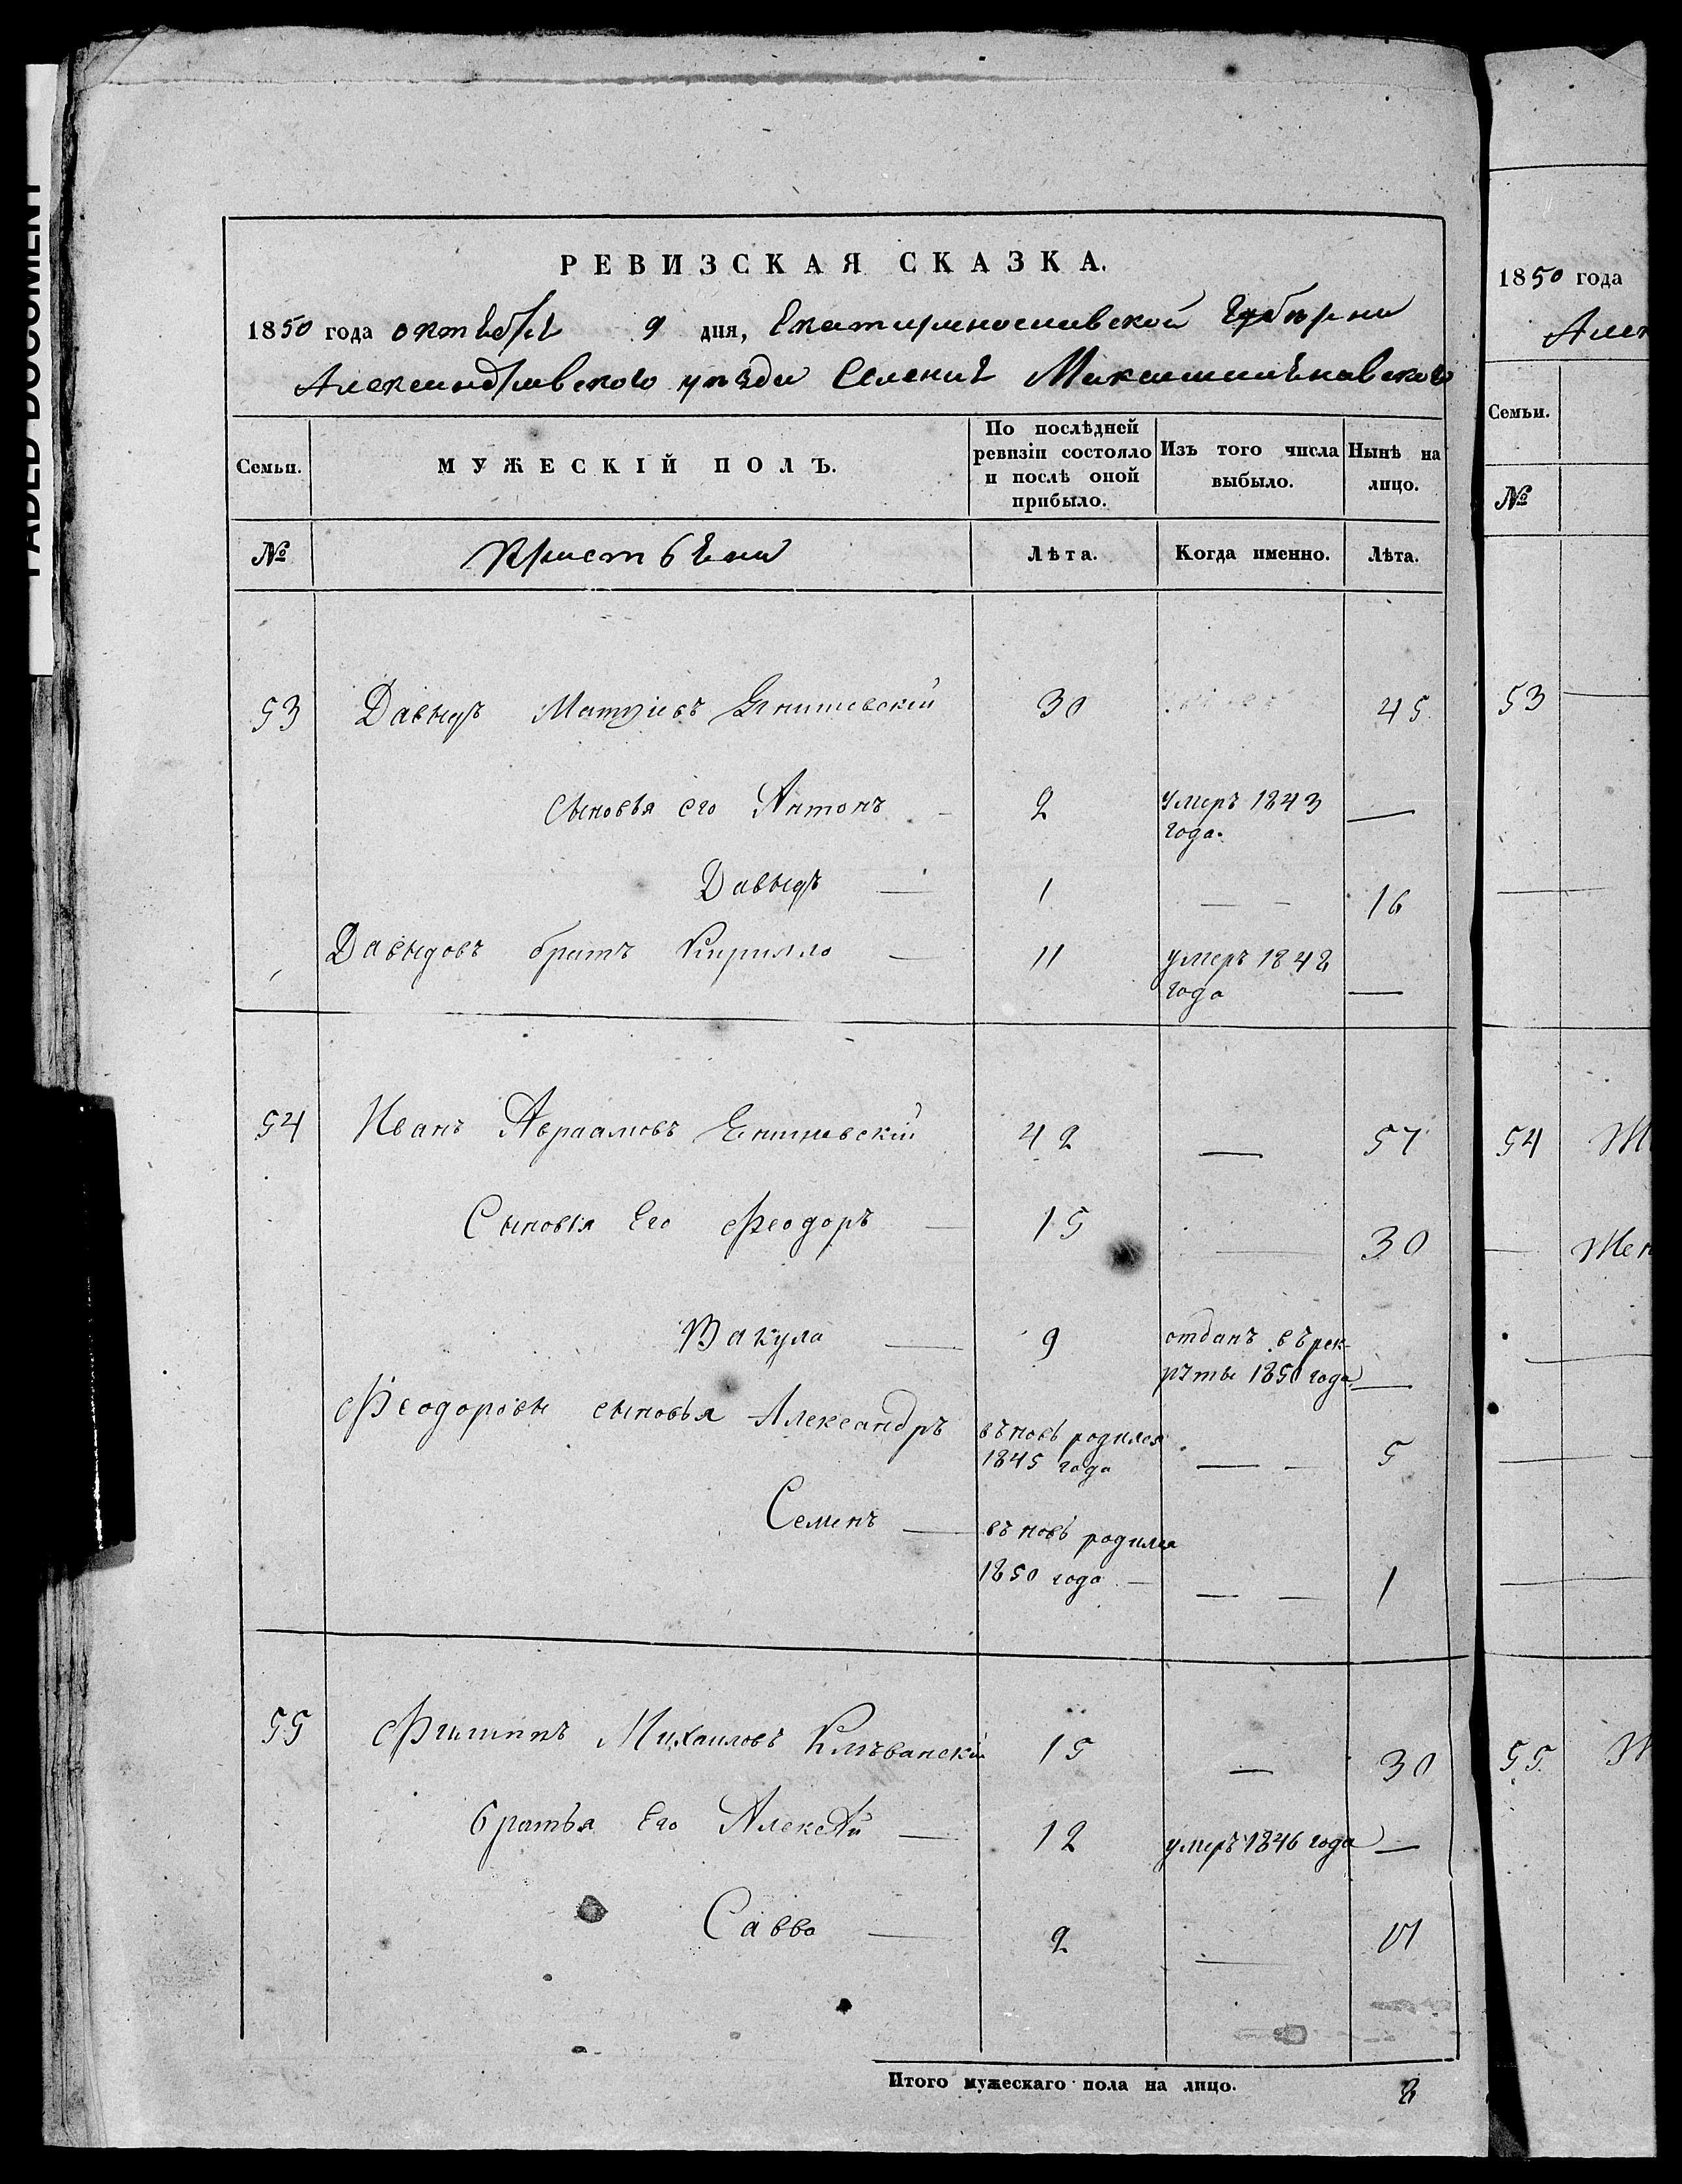 РЕВИЗСКАЯ СКАЗКА.
1850 года октября 9 дня, Екатеринославской Губерни
Александровского уезда Селение
Семьи. МУЖЕСКІЙ ПОЛЪ. По послѣдней ревизіи состояло и послѣ оной прибыло. Изъ того числа выбыло. Нынѣ на лицо.
№ Крестьени Лѣта. Когда именно. Лѣта.
53 Давыдъ Матуісвъ 30 45
Сыновья его Антонъ — 2 умеръ 1843 года. —
Давыдъ — 1 — — 16
Давыдовъ братъ Кирилло — 11 умеръ 1848 года —
54 Иванъ Авраамовъ Енишевскій 42 — 57
Сыновья Его Феодоръ — 15 — 30
Вакула — 9 отданъ въ рек-
рѣты 1850 года —
Феодоровы сыновья Александръ въновь родился
1845 года — — 5
Семенъ — въ новь родился
1850 года — — — 1
55 Филиппъ Михаиловъ 15 — 30
братья Его Алексѣй — 12 умеръ 1846 года —
Савва — 2 — 17
Итого мужескаго пола на лицо. 8
1850 года
Алек
Семьи.
№
53
54 Ж
Жен
55 Ж
FADED DOCUMENT